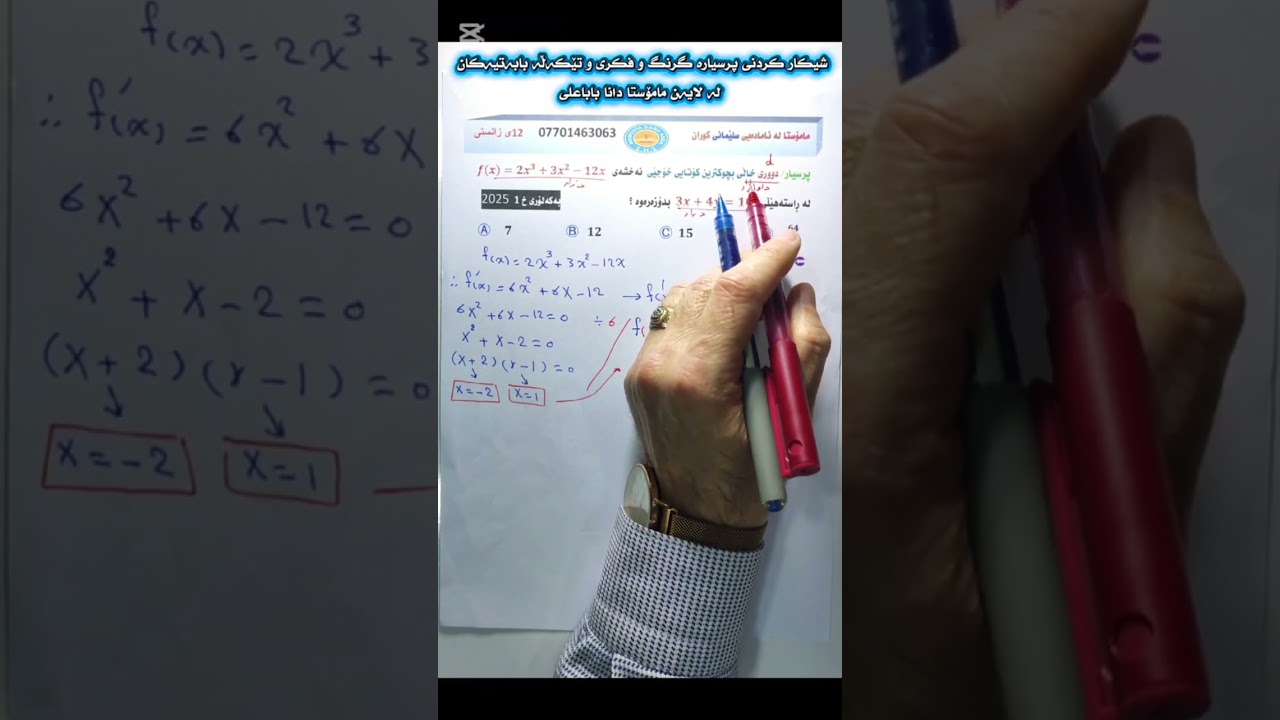 شیکار کردنی پرسیارە گرنگ و فکری و تێکەڵە بابەتیەکان
لە لایەن مامۆستا دانا باباعلی
مامۆستا لە ئامادەیی سلێمانی کوران 07701463063 12ی زانستی
d
پرسیار/ دووری خاڵی بچوکترین کۆتایی خۆجێی نەخشەی f(x) = 2x³ + 3x² − 12x
لە ڕاستەهێڵی 3x + 4y = 1 بدۆزەرەوە ؟ بەکەلۆری خ1 2025
Ⓐ 7 Ⓑ 12 Ⓒ 15 64
f(x) = 2x³ + 3x² − 12x
∴ f′(x) = 6x² + 6x − 12 → f′
6x² + 6x − 12 = 0 ÷ 6
x² + x − 2 = 0
(x + 2) (x − 1) = 0
x = −2 x = 1
f(x) = 2x³ + 3
∴ f′(x) = 6x² + 6x
6x² + 6x − 12 = 0
x² + x − 2 = 0
(x + 2) (x − 1) = 0
x = −2 x = 1